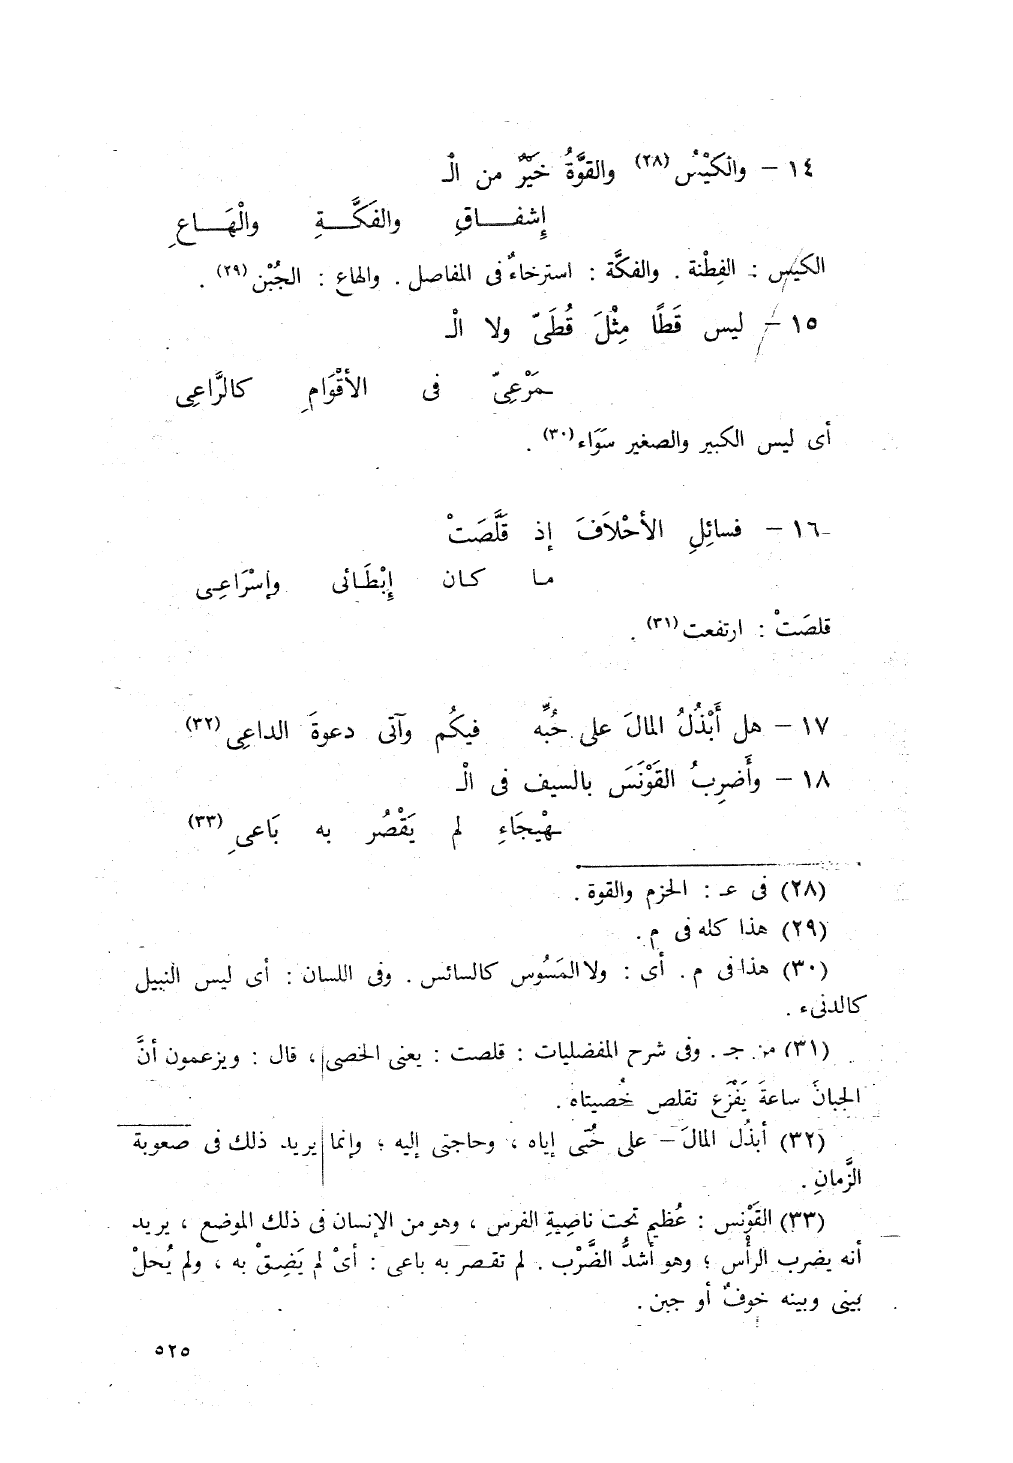 ١٤ – والكَيْسُ (٢٨) والقوَّةُ خَيْرٌ من الْـ
إِشفـــاقِ والفَكَّـــةِ والْهَـــاعِ
الكيس : الفِطْنة . والفكَّة : استرخاءٌ فى المفاصل . والهاع : الجُبْن (٢٩) .
١٥ – ليس قَطًا مِثْلَ قُطَىّ ولا الْـ
ـمَرْعِىّ فى الأقْوَامِ كالرَّاعِى
أى ليس الكبير والصغير سَوَاء (٣٠) .
١٦ – فسائِلِ الأحْلاَفَ إذ قَلَّصَتْ
ما كان إِبْطَائى وإسْرَاعِى
قلصَتْ : ارتفعت (٣١) .
١٧ – هل أَبْذُلُ المالَ على حُبِّه فيكُم وآتى دعوةَ الداعِى (٣٢)
١٨ – وأَضرِبُ القَوْنَسَ بالسيف فى الْـ
ـهْيجَاءِ لم يَقْصُر به بَاعىِ (٣٣)
(٢٨) فى عـ : الحزم والقوة .
(٢٩) هذا كله فى م .
(٣٠) هذا فى م . أى : ولا المَسُوس كالسائس . وفى اللسان : أى ليس النبيل
كالدنىء .
(٣١) من جـ . وفى شرح المفضليات : قلصت : يعنى الخصى ، قال : ويزعمون أنَّ
الجبانَ ساعةَ يَفْزَع تقلص خُصيتاه .
(٣٢) أبذُل المالَ – على حُبِّى إياه ، وحاجتى إليه ؛ وإنما يريد ذلك فى صعوبة
الزَّمانِ .
(٣٣) القَوْنس : عُظيم تحت ناصِيةِ الفرس ، وهو من الإنسان فى ذلك الموضع ، يريد
أنه يضرب الرأْس ؛ وهو أشدُّ الضَّرْب . لم تقصر به باعى : أىْ لم يَضِقْ به ، ولم يُحلْ
بينى وبينه خوفٌ أو جبن .
٥٢٥